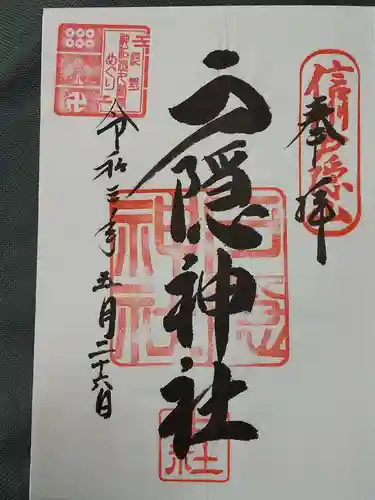 奉拝
信州戸隠山
戸隠神社
令和三年五月二十六日
北長野
神社真田
めぐり